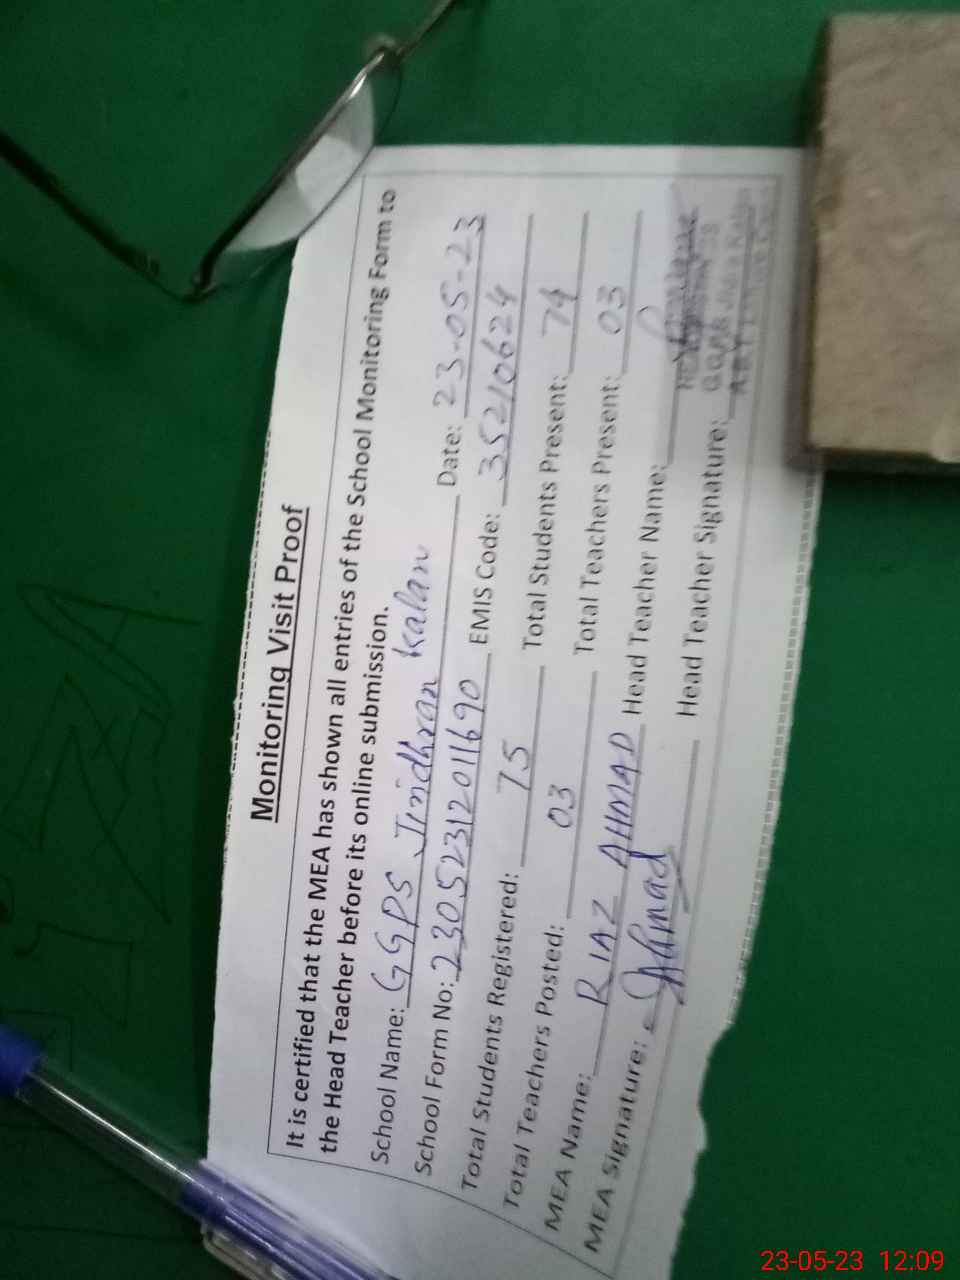 Monitoring Visit Proof
It is certified that the MEA has shown all entries of the School Monitoring Form to
the Head Teacher before its online submission.
School Name: GGPS Jindhran Kalan Date: 23-05-23
School Form No: 2305231201690 EMIS Code: 35210624
Total Students Registered: 75 Total Students Present: 74
Total Teachers Posted: 03 Total Teachers Present: 03
MEA Name: RIAZ AHMAD Head Teacher Name:
MEA Signature: Ahmad Head Teacher Signature:
23-05-23 12:09